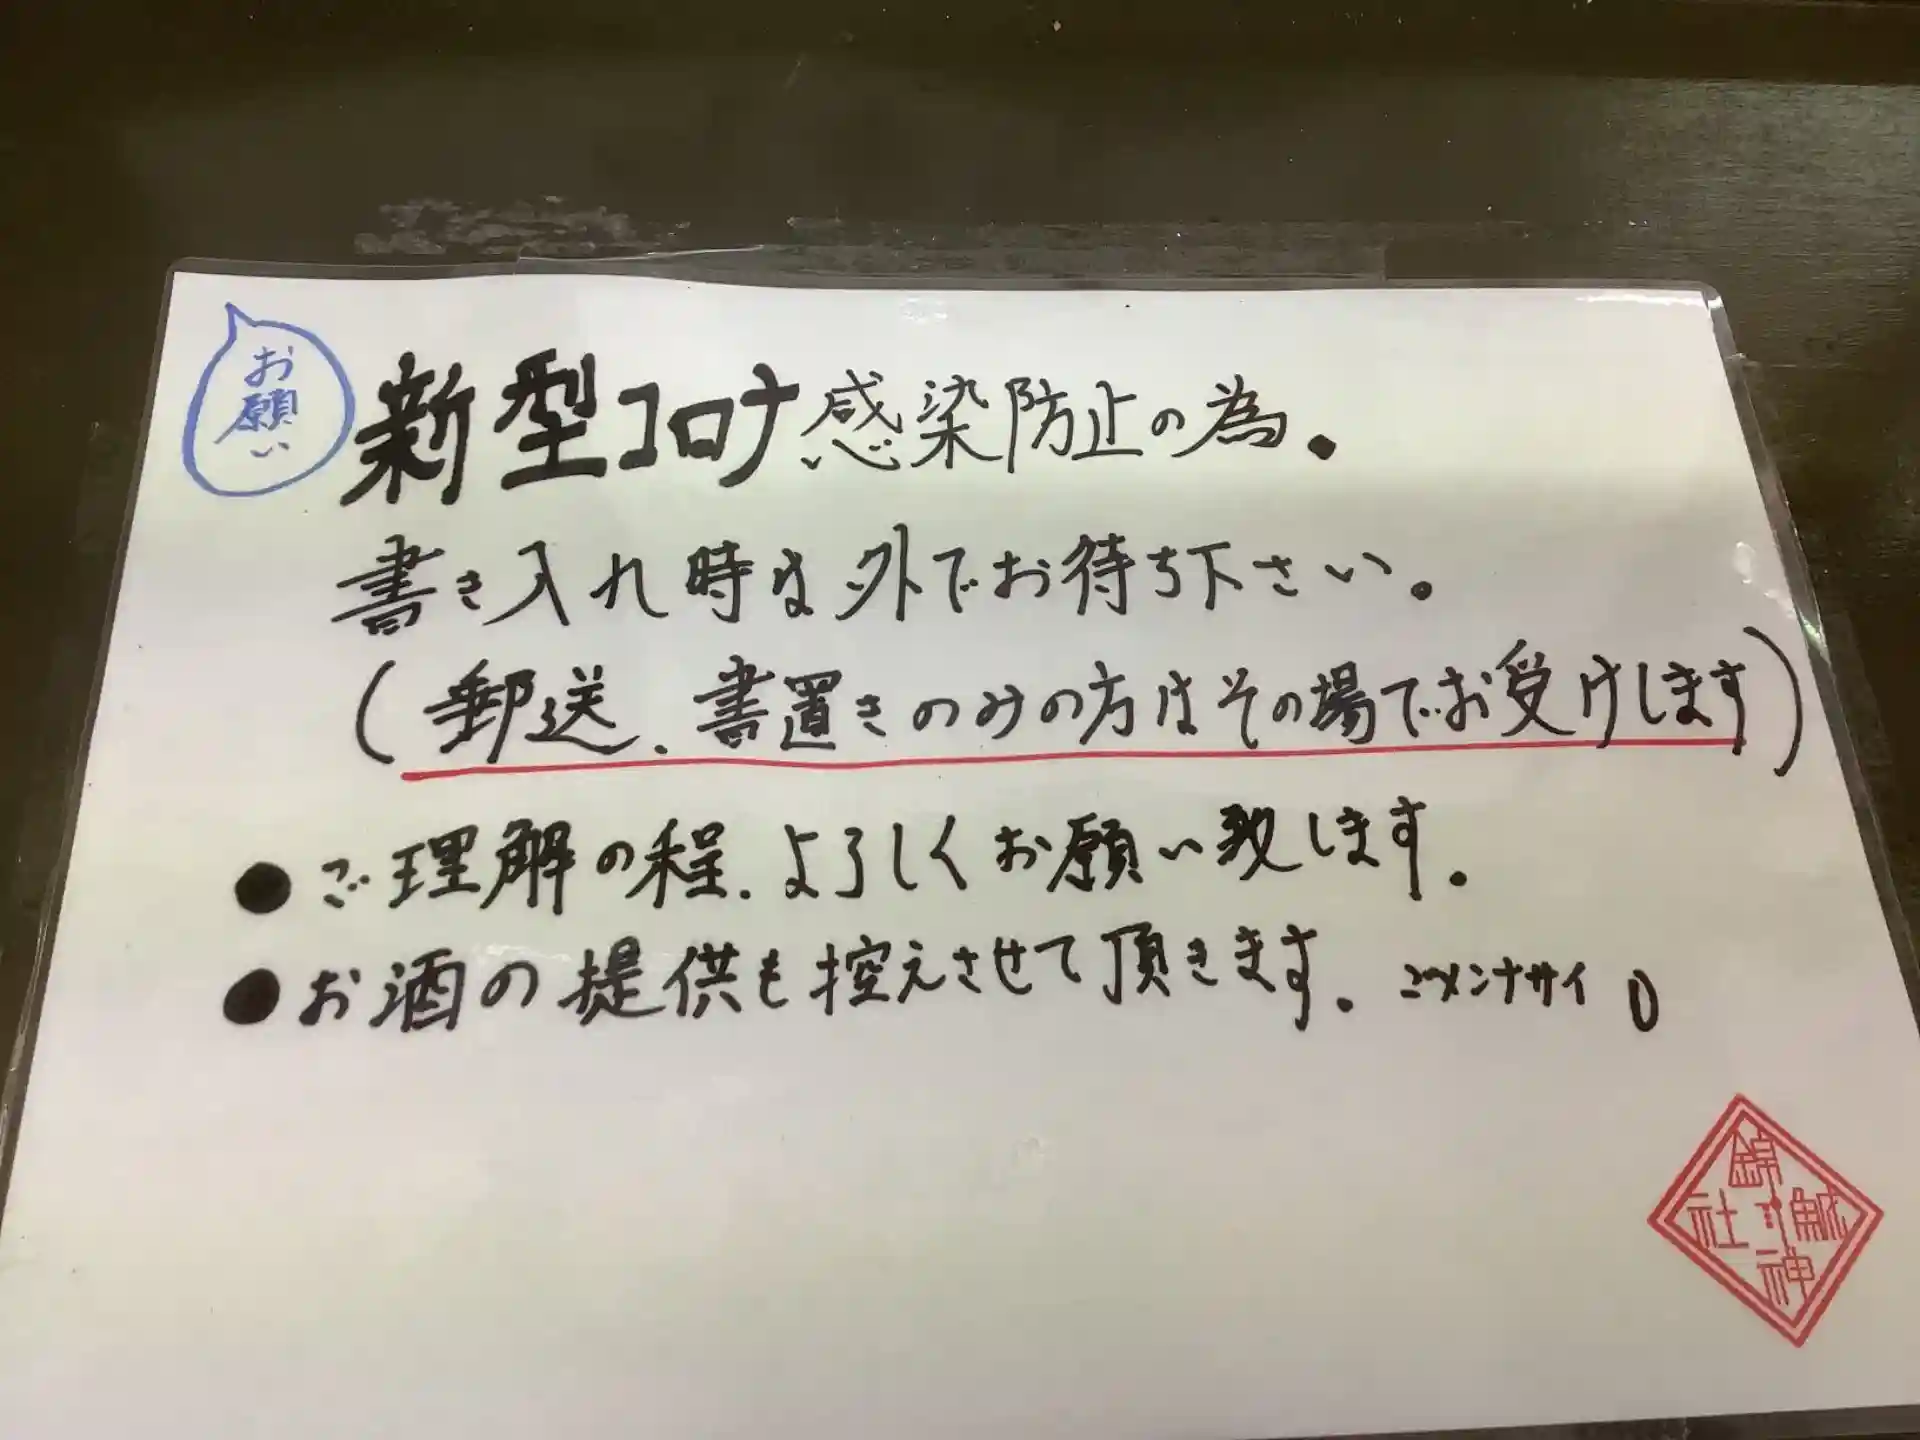 お願い
新型コロナ感染防止の為.
書き入れ時は外でお待ち下さい.
(郵送、書置きのみの方はその場でお受けします)
●ご理解の程、よろしくお願い致します.
●お酒の提供も控えさせて頂きます. ゴメンナサイ
錦
社
神